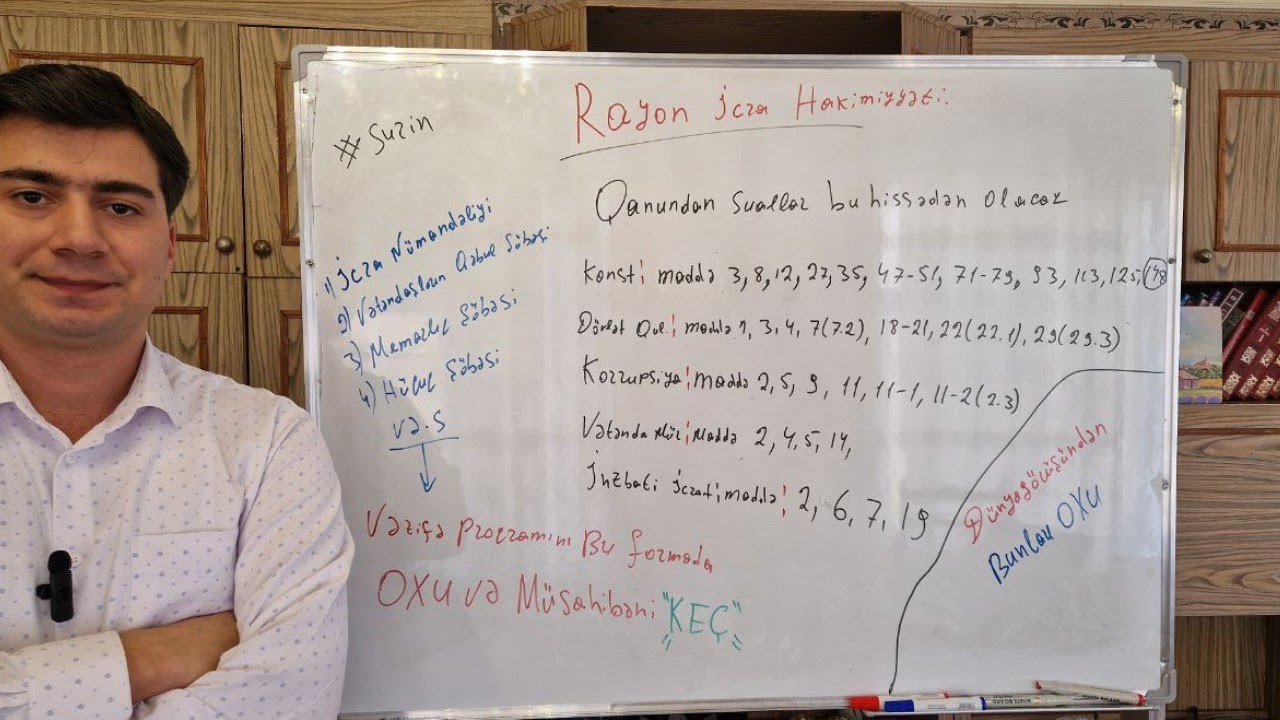 Rayon İcra Hakimiyyəti.
# Suzin
Qanundan Suallar bu hissədən olacaq
Konst! maddə 3, 8, 12, 27, 35, 47-51, 71-79, 93, 113, 125, 148
Dövlət Qul! maddə 1, 3, 4, 7(7.2), 18-21, 22(22.1), 29(29.3)
Korrupsiya! maddə 2, 5, 9, 11, 11-1, 11-2(2.3)
Vətənda Mür! Maddə 2, 4, 5, 14,
İnzbati İcrat! maddə! 2, 6, 7, 19
1) İcra Nümandəliyi
2) Vətəndaşların Qəbul Şöbəsi
3) Memarlıq Şöbəsi
4) Hüquq Şöbəsi
və.s
Vəzifə proqramını Bu formada
OXU və Müsahibəni "KEÇ"
Dünyagörüşündən
Bunları OXU